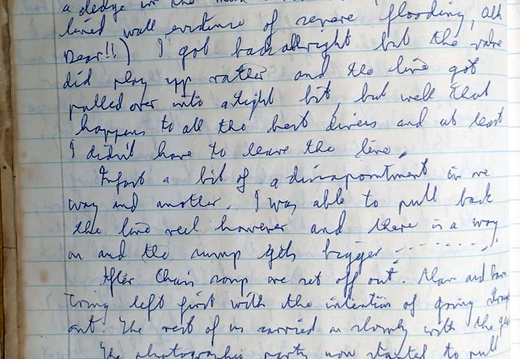 a dredge in the
lined wall evidence of severe flooding, (Oh
Dear!!) I got back allright but the valve
did play up rather and the line got
pulled over into a tight bit, but well that
happens to all the best divers and at least
I didn't have to leave the line.
Infact a bit of a dissapointment in one
way and another. I was able to pull back
the line reel however and there is a way
on and the sump gets bigger .......
After Chais soup we set off out. Alan and
Tring left first with the intention of going straight
out. The rest of us carried on slowly with the
The photographic party now started to pull